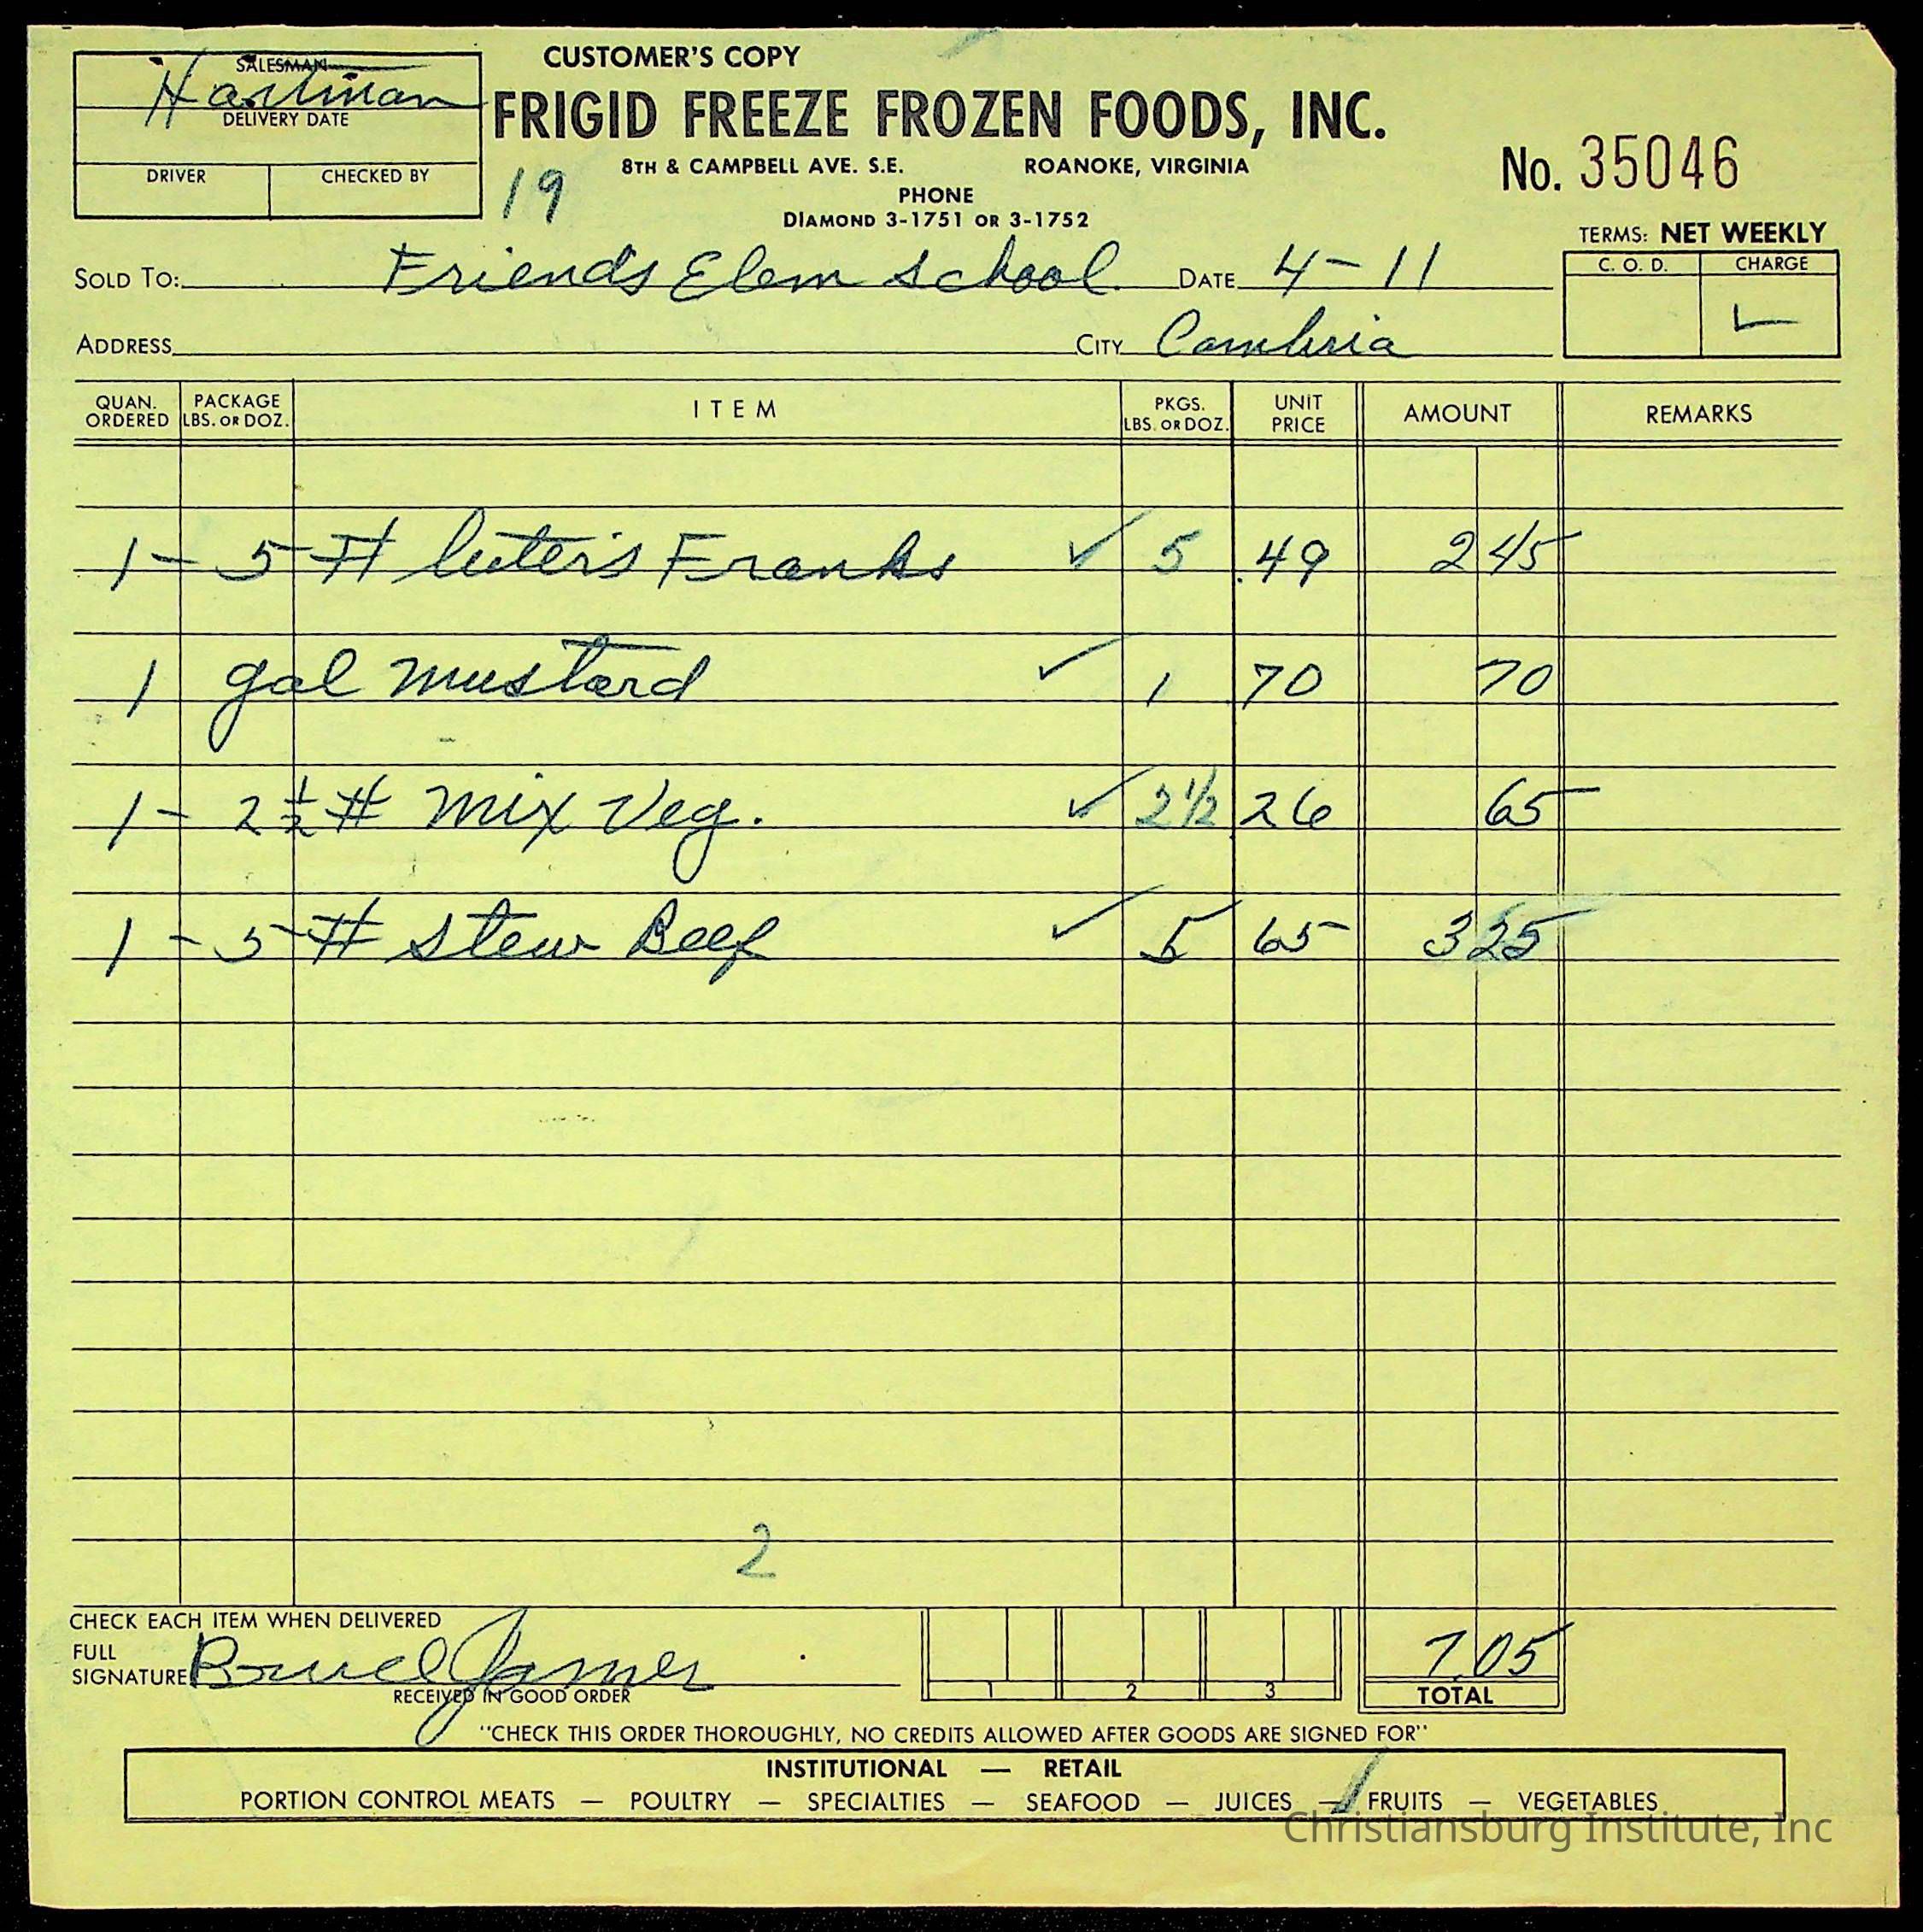 CUSTOMER'S COPY
SALESMAN
Hartman
DELIVERY DATE
DRIVER CHECKED BY
FRIGID FREEZE FROZEN FOODS, INC.
8TH & CAMPBELL AVE. S.E. ROANOKE, VIRGINIA
PHONE
DIAMOND 3-1751 OR 3-1752
19
No. 35046
TERMS: NET WEEKLY
C. O. D. CHARGE
✓
SOLD TO: Friends Elem School DATE 4-11
ADDRESS CITY Cambria
QUAN. ORDERED PACKAGE LBS. OR DOZ. ITEM PKGS. LBS. OR DOZ. UNIT PRICE AMOUNT REMARKS
1 - 5 # luter's Franks ✓ 5 .49 2 45
1 gal mustard ✓ 1 70 70
1 - 2 1/2 # mix Veg. ✓ 2 1/2 26 65
1 - 5 # stew Beef ✓ 5 65 3 25
2
CHECK EACH ITEM WHEN DELIVERED
FULL SIGNATURE James
RECEIVED IN GOOD ORDER
1 2 3
7.05
TOTAL
"CHECK THIS ORDER THOROUGHLY, NO CREDITS ALLOWED AFTER GOODS ARE SIGNED FOR"
INSTITUTIONAL — RETAIL
PORTION CONTROL MEATS — POULTRY — SPECIALTIES — SEAFOOD — JUICES — FRUITS — VEGETABLES
Christiansburg Institute, Inc